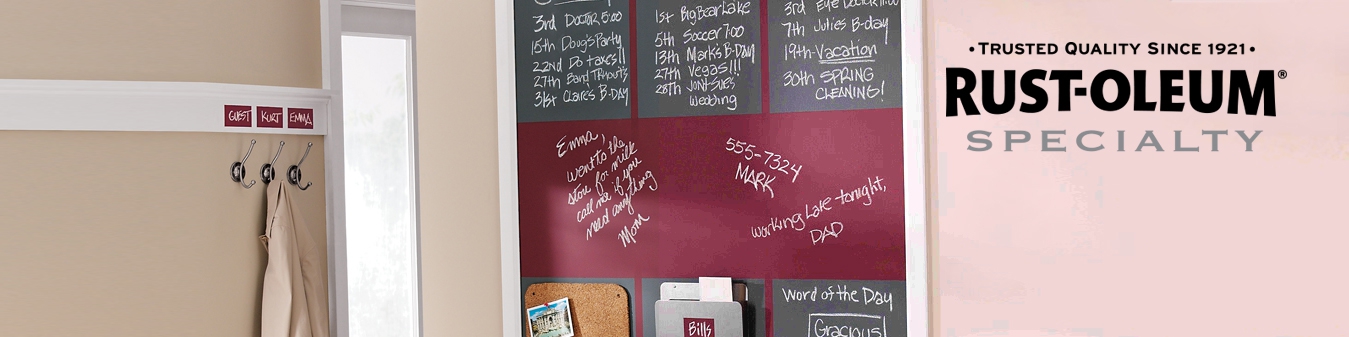 GUEST
KURT
EMMA
3rd DOCTOR 5:00
15th Doug's Party
22nd Do taxes!!
27th Band Tryouts
31st Claire's B-DAY
1st Big Bear Lake
5th Soccer 7:00
13th Mark's B-Day
27th Vegas!!!
28th Jon+Sue's
Wedding
3rd Eye Doctor
7th Julie's B-day
19th Vacation
30th SPRING
CLEANING!
Emma,
went to the
store for milk
call me if you
need anything
Mom
555-7324
MARK
Working Late tonight,
DAD
Bills
Word of the Day
Gracious
• TRUSTED QUALITY SINCE 1921 •
RUST-OLEUM®
SPECIALTY